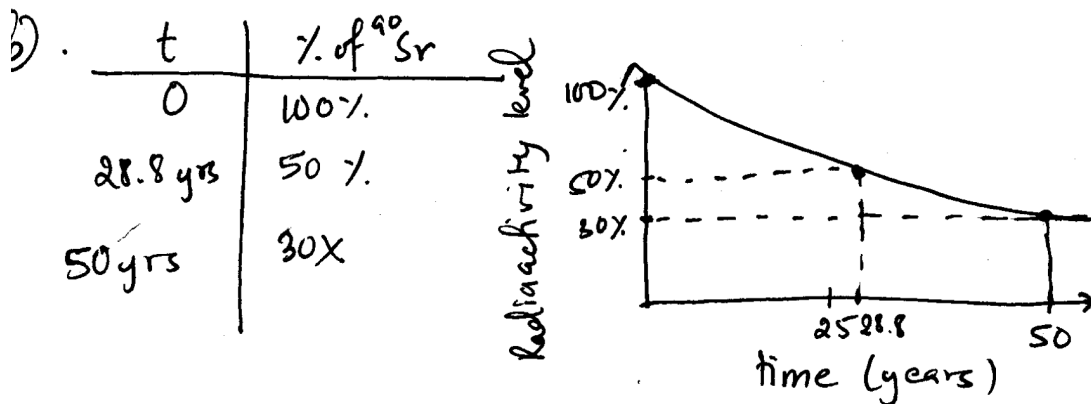 b).
t % of ⁹⁰Sr
0 100%
28.8 yrs 50 %
50 yrs 30%
Radiaactivity level
100%
50%
30%
25 28.8 50
time (years)